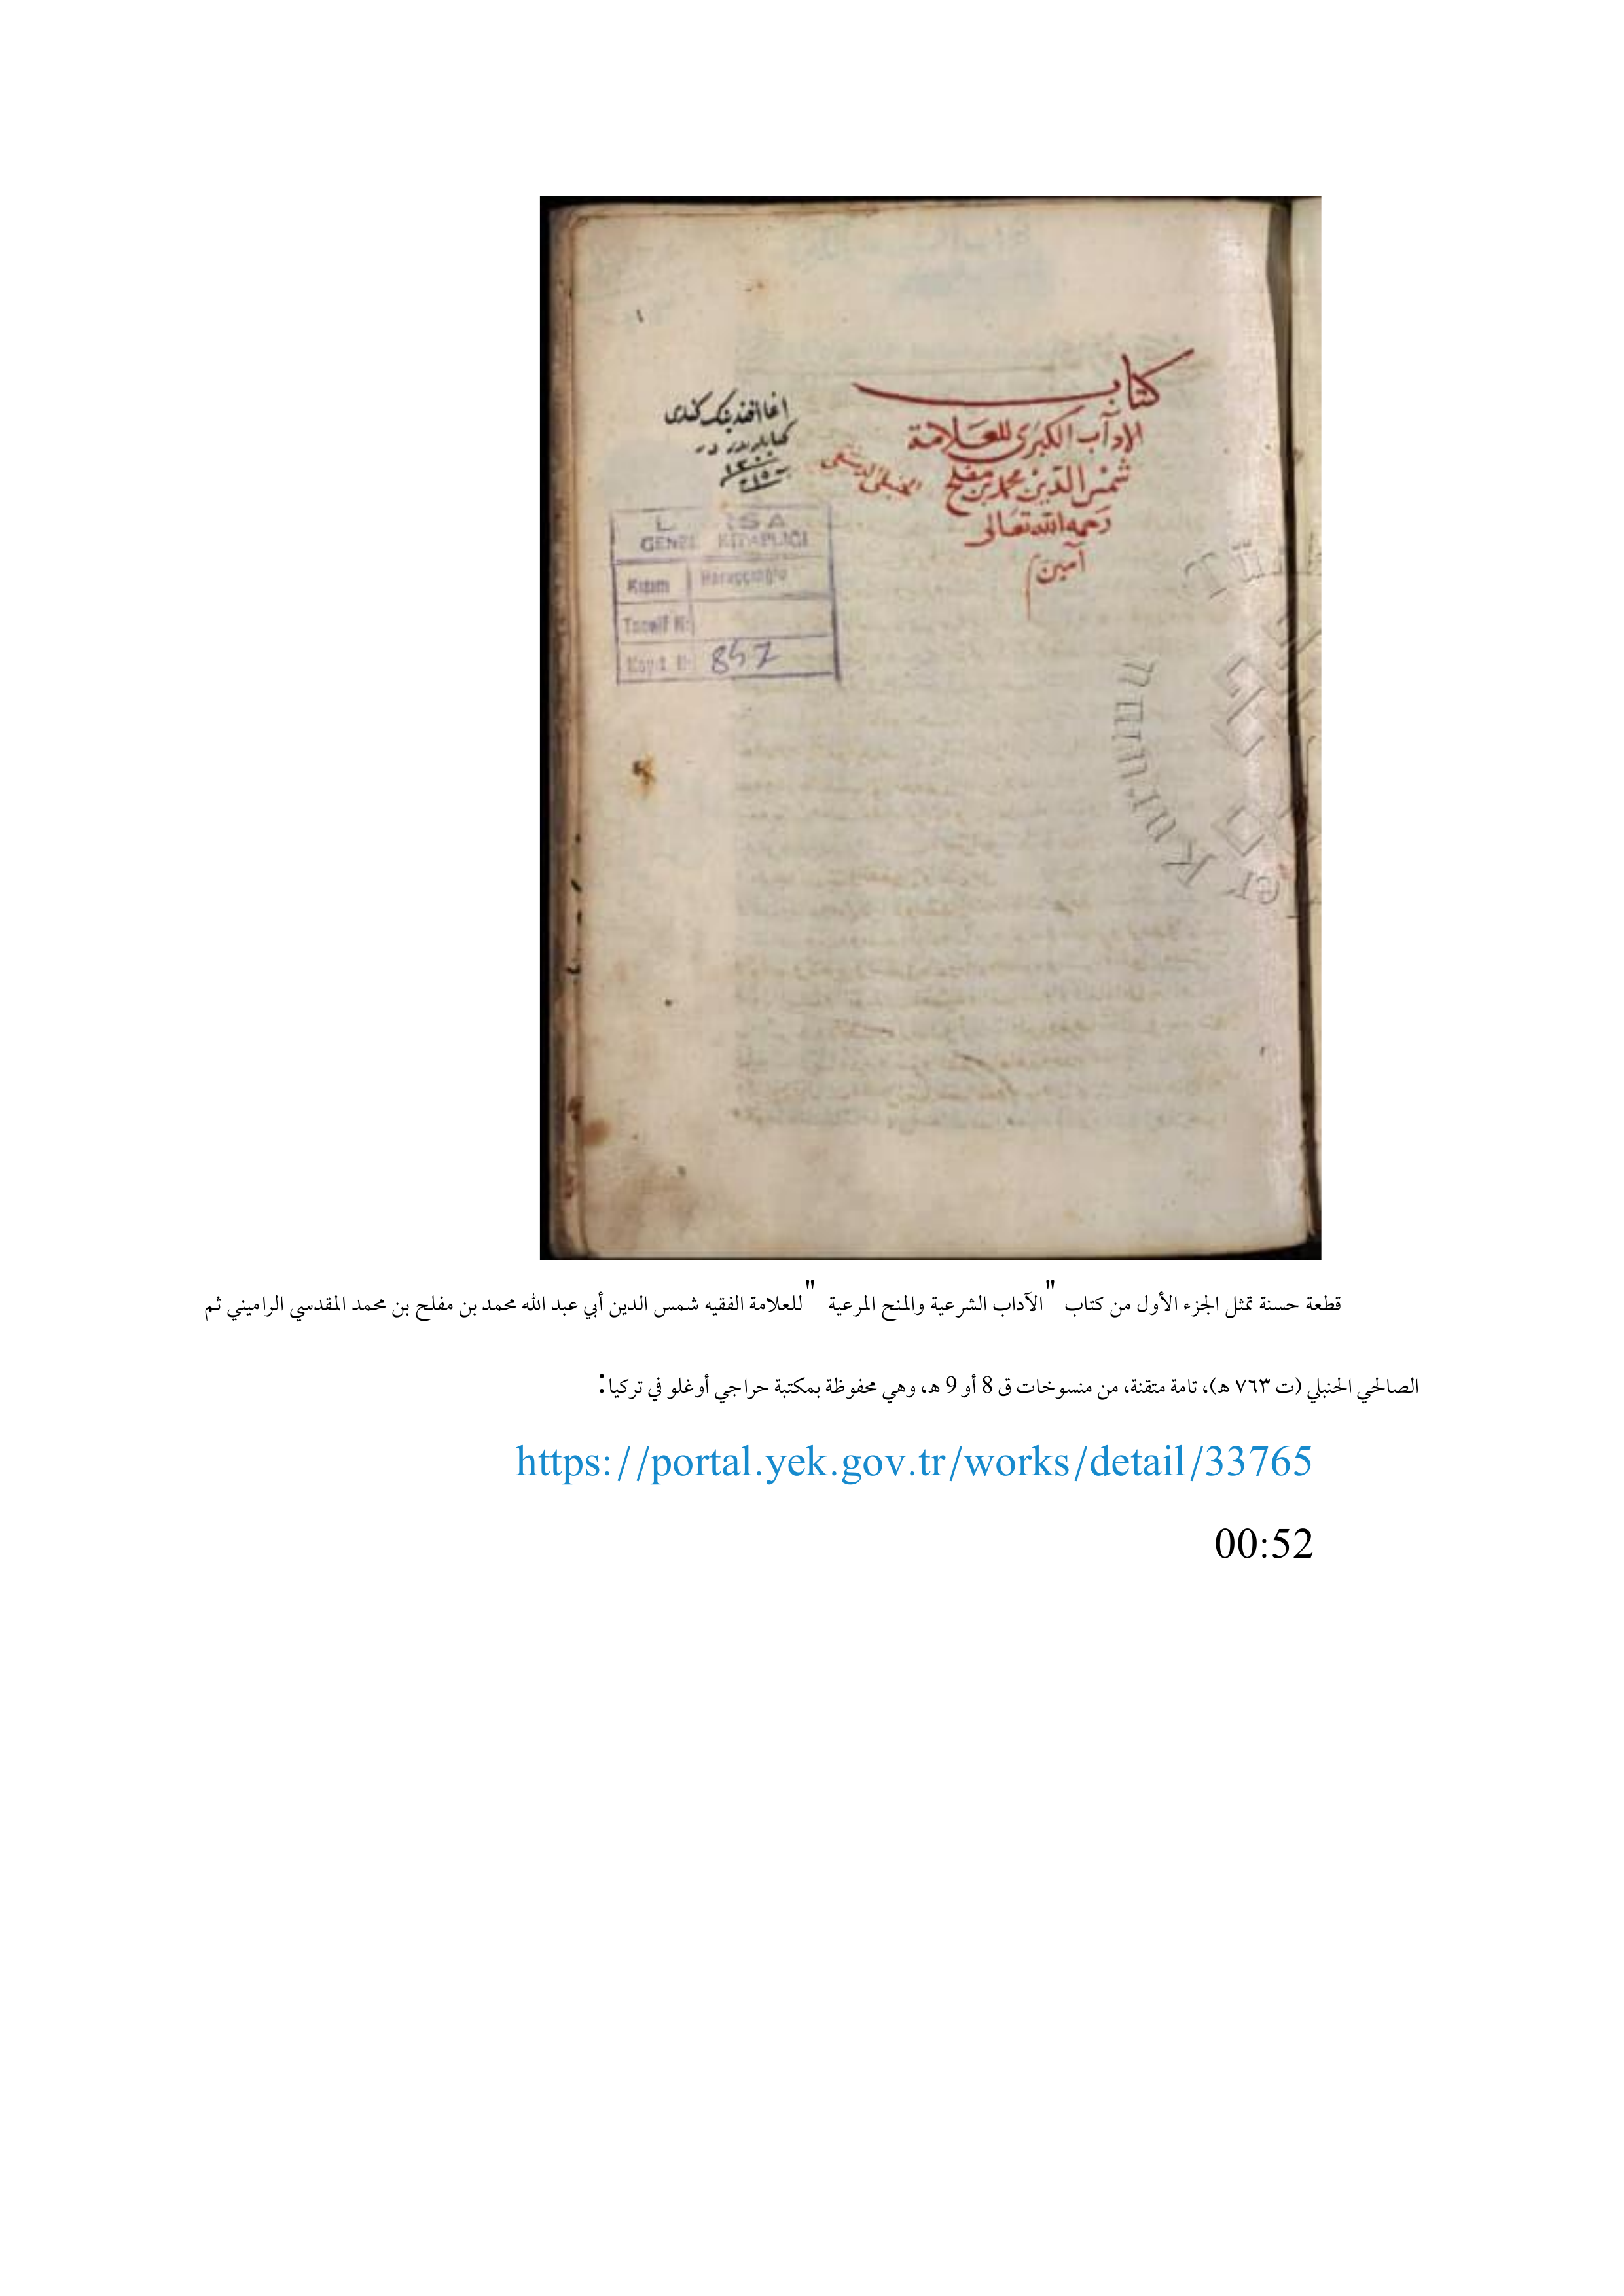 كتاب
الاداب الكبرى للعلامة
شمس الدين محمد بن مفلح
الحنبلي الدمشقي
رحمه الله تعالى
آمين
اغا افندينك كندى
كتابلريدر
GENEL KİTAPLIĞI
Kısım Haraççıoğlu
Tasnif N:
Kayıt N: 857
قطعة حسنة تمثل الجزء الأول من كتاب "الآداب الشرعية والمنح المرعية " للعلامة الفقيه شمس الدين أبي عبد الله محمد بن مفلح بن محمد المقدسي الراميني ثم
الصالحي الحنبلي (ت ٧٦٣ هـ)، تامة متقنة، من منسوخات ق 8 أو 9 هـ، وهي محفوظة بمكتبة حراجي أوغلو في تركيا:
https://portal.yek.gov.tr/works/detail/33765
00:52